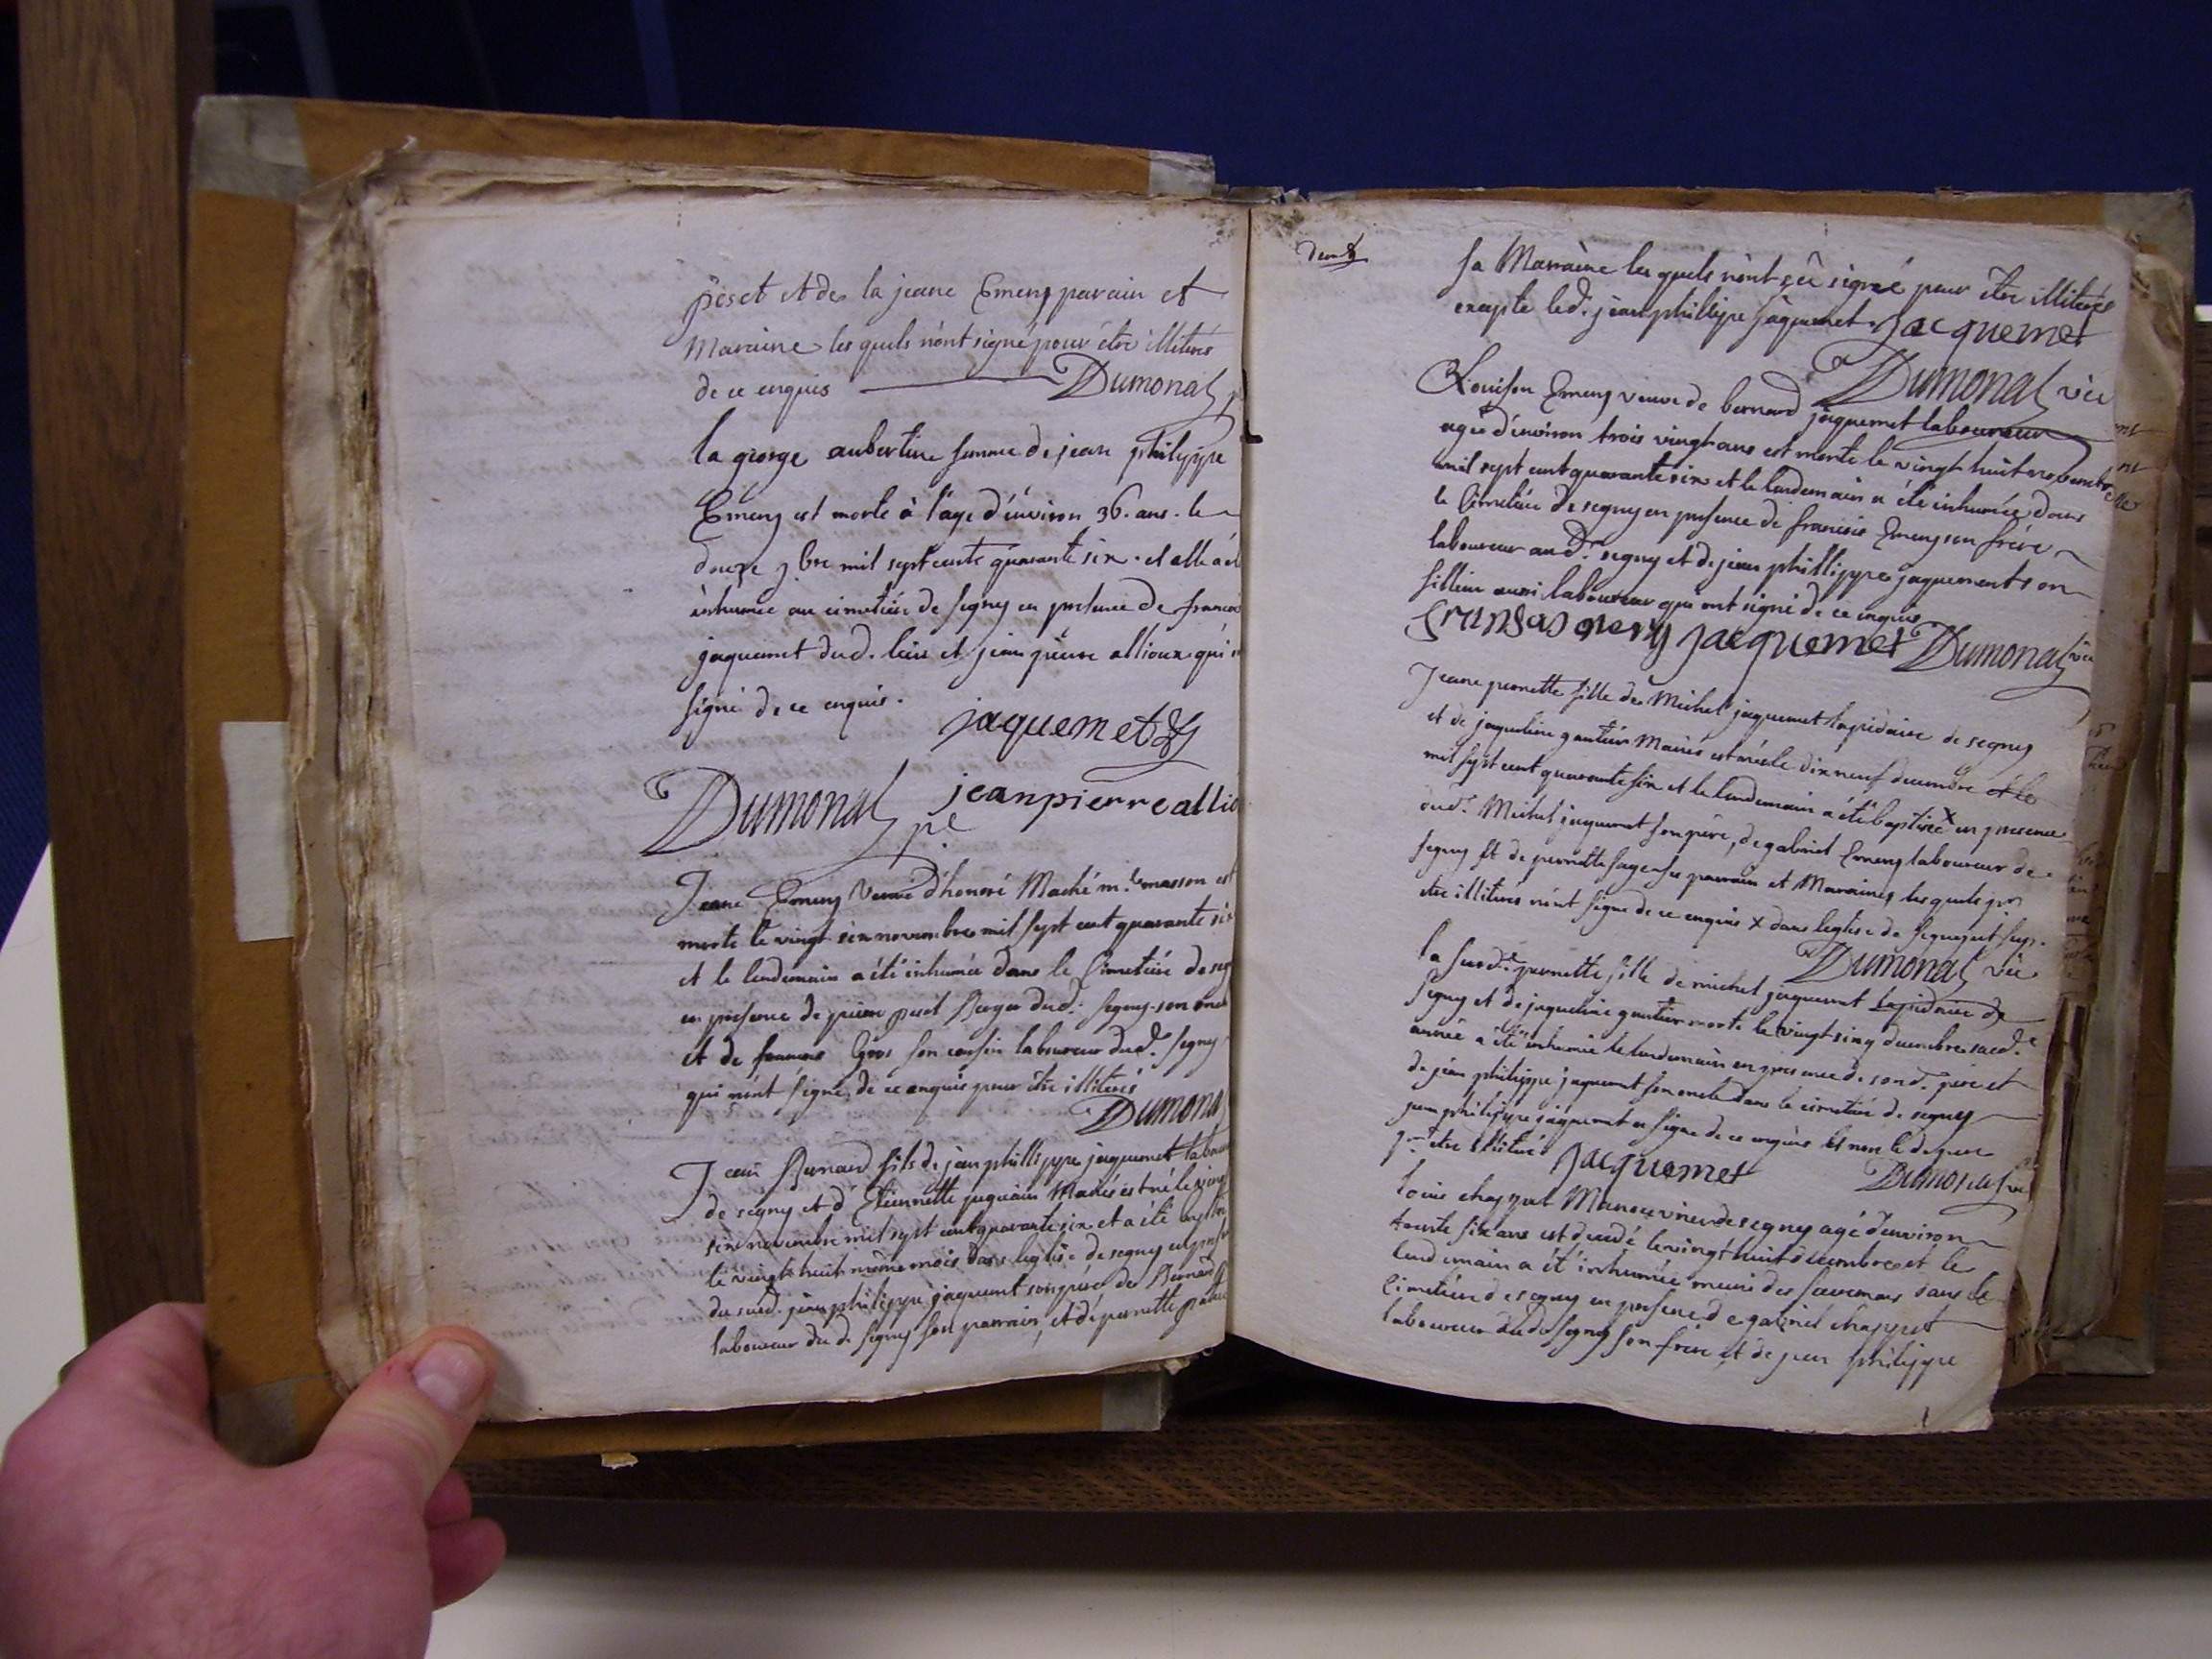 peset et de la jeane Emery parain et
Maraine les quels n'ont signé pour étre illiterés
de ce enquis Dumonal
la george aubertine femme de jean philippe
Emery est morte à l'age d'environ 36. ans. le
douze 9.bre mil sept cents quarante six. et elle a été
inhumée au cimetière de segny en presence de francois
jaquemet dud. lieu et jean pierre allioux qui
signé de ce enquis.
jaquemet
Dumonal jeanpierre allio
Jeane Emery veuve d'honoré Maché m.e masson est
morte le vingt six novembre mil sept cent quarante six
et le lendemain a été inhumée dans le Cimetière de seg
en presence de pierre peset Berger dud. segny son oncle
et de francois Gros son cousin laboureur dud. segny
qui n'ont signé de ce enquis pour étre illiterés
Dumona
Jean Bernard fils de jean phillippe jaquemet labou
de segny et d'Etiennette Mariés est né le vingt
six novembre mil sept cent quarante six et a été baptisé
le vingt huit même mois dans leglise de segny en pres
du sud. jean philippe jaquemet son père, de Bernard
laboureur du d. segny son parrain, et de pernette
sa Marraine les quels n'ont sçu signé pour étre illiterés
excepte led. jean phillippe jaquemet. jacquemet
Dumonal vic
Louison Emery veuve de bernard jaquemet laboureur
agée d'environ trois vingt ans est morte le vingt huit novembre
mil sept cent quarante six et le lendemain a été inhumée dans
le Cimetière de segny en presence de francois Emery son frère
laboureur aud. segny et de jean phillippe jaquement son
fillieu aussi laboureur qui ont signé de ce enquis
jacquemet Dumonal vic
Jeane pernette fille de Michel jaquemet lapidaire de segny
et de jaqueline gautier Mariés est née le dix neuf decembre et le
mil sept cent quarante six et le lendemain a été baptisée x en presence
dud. Michel jaquemet son père, de gabriel Emery laboureur de
segny et de pernette parrain et Maraine les quels pr
etre illiterés n'ont signé de ce enquis x dans leglise de
Dumonal vic
la susd.e pernette fille de michel jaquemet lapidaire de
segny et de jaqueline gautier morte le vingt sinq decembre sud.e
année a été inhumée le lendemain en presence de son d. père et
de jean philippe jaquemet son oncle dans le cimetière de segny
jean philippe jaquemet a signé de ce enquis et non le d. pere
pr etre illiteré jacquemet Dumonal vic
Louis chappet Manouvrier de segny agé d'environ
trente six ans est decedé le vingt huit decembre et le
lendemain a été inhumée muni des sacremens dans le
Cimetière de segny en presence de gabriel chappet
laboureur du d. segny son frère et de jean philippe